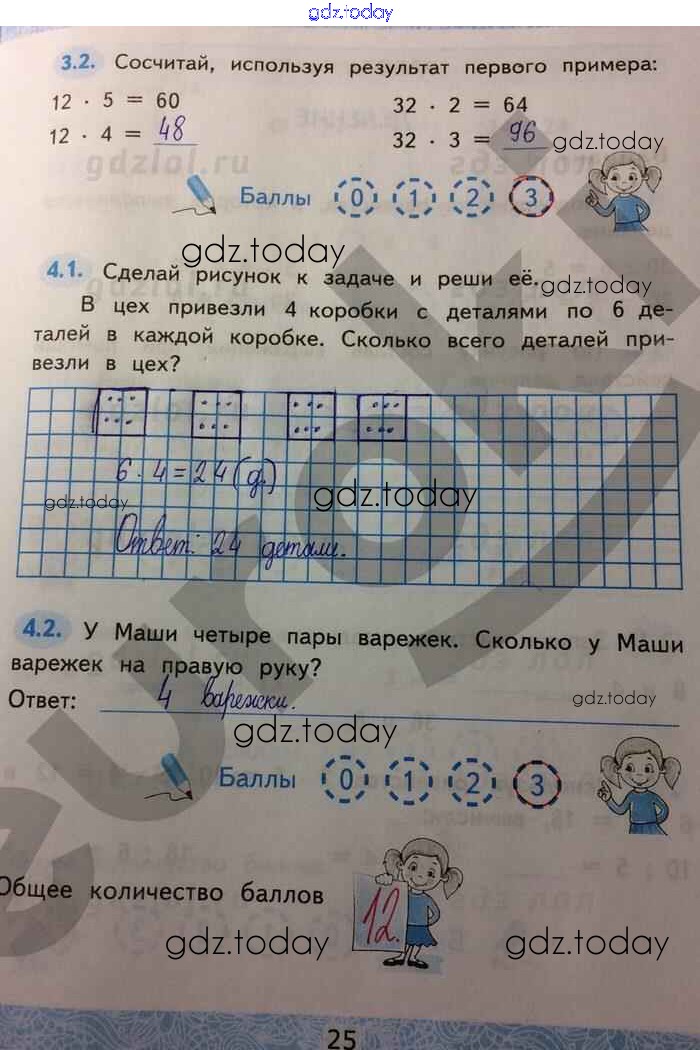 gdz.today
3.2. Сосчитай, используя результат первого примера:
12 · 5 = 60
32 · 2 = 64
12 · 4 = 48
32 · 3 = 96
gdz.today
gdzlol.ru
Баллы 0 1 2 3
gdz.today
4.1. Сделай рисунок к задаче и реши её.
gdz.today
В цех привезли 4 коробки с деталями по 6 де-
талей в каждой коробке. Сколько всего деталей при-
везли в цех?
6 · 4 = 24 (д.)
gdz.today
gdz.today
Ответ: 24 детали.
4.2. У Маши четыре пары варежек. Сколько у Маши
варежек на правую руку?
Ответ: 4 варежки.
gdz.today
gdz.today
Баллы 0 1 2 3
Общее количество баллов 12.
gdz.today
gdz.today
euroki
25